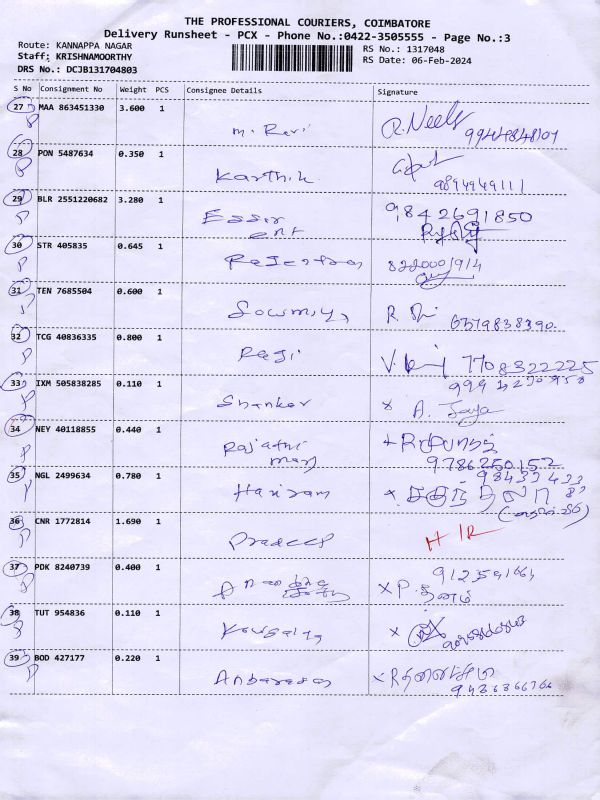 THE PROFESSIONAL COURIERS, COIMBATORE
Delivery Runsheet - PCX - Phone No.:0422-3505555 - Page No.:3
Route: KANNAPPA NAGAR
RS No.: 1317048
Staff: KRISHNAMOORTHY
RS Date: 06-Feb-2024
DRS No.: DCJB131704803
S No Consignment No Weight PCS Consignee Details Signature
27 MAA 863451330 3.600 1
M. Ravi
28 PON 5487634 0.350 1
Karthik
9894949111
29 BLR 2551220682 3.280 1
9842691850
30 STR 405835 0.645 1
31 TEN 7685504 0.600 1
Sowmiya
6379838390
32 TCG 40836335 0.800 1
Raji
7708322225
33 IXM 505838285 0.110 1
Shankar x A. Jaya
34 NEY 40118855 0.440 1
Rajathi
mary
9786250152
35 NGL 2499634 0.780 1
Hariram
36 CNR 1772814 1.690 1
Pradeep
37 PDK 8240739 0.400 1
x P. தனம்
38 TUT 954836 0.110 1
Kousalya
39 BOD 427177 0.220 1
Anbarasan